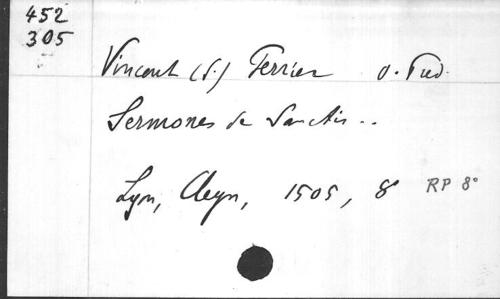 452
305
Vincent (S.) Ferrier O. Pred.
Sermones de Sanctis ..
Lyon, Cleyn, 1505, 8° RP 8°